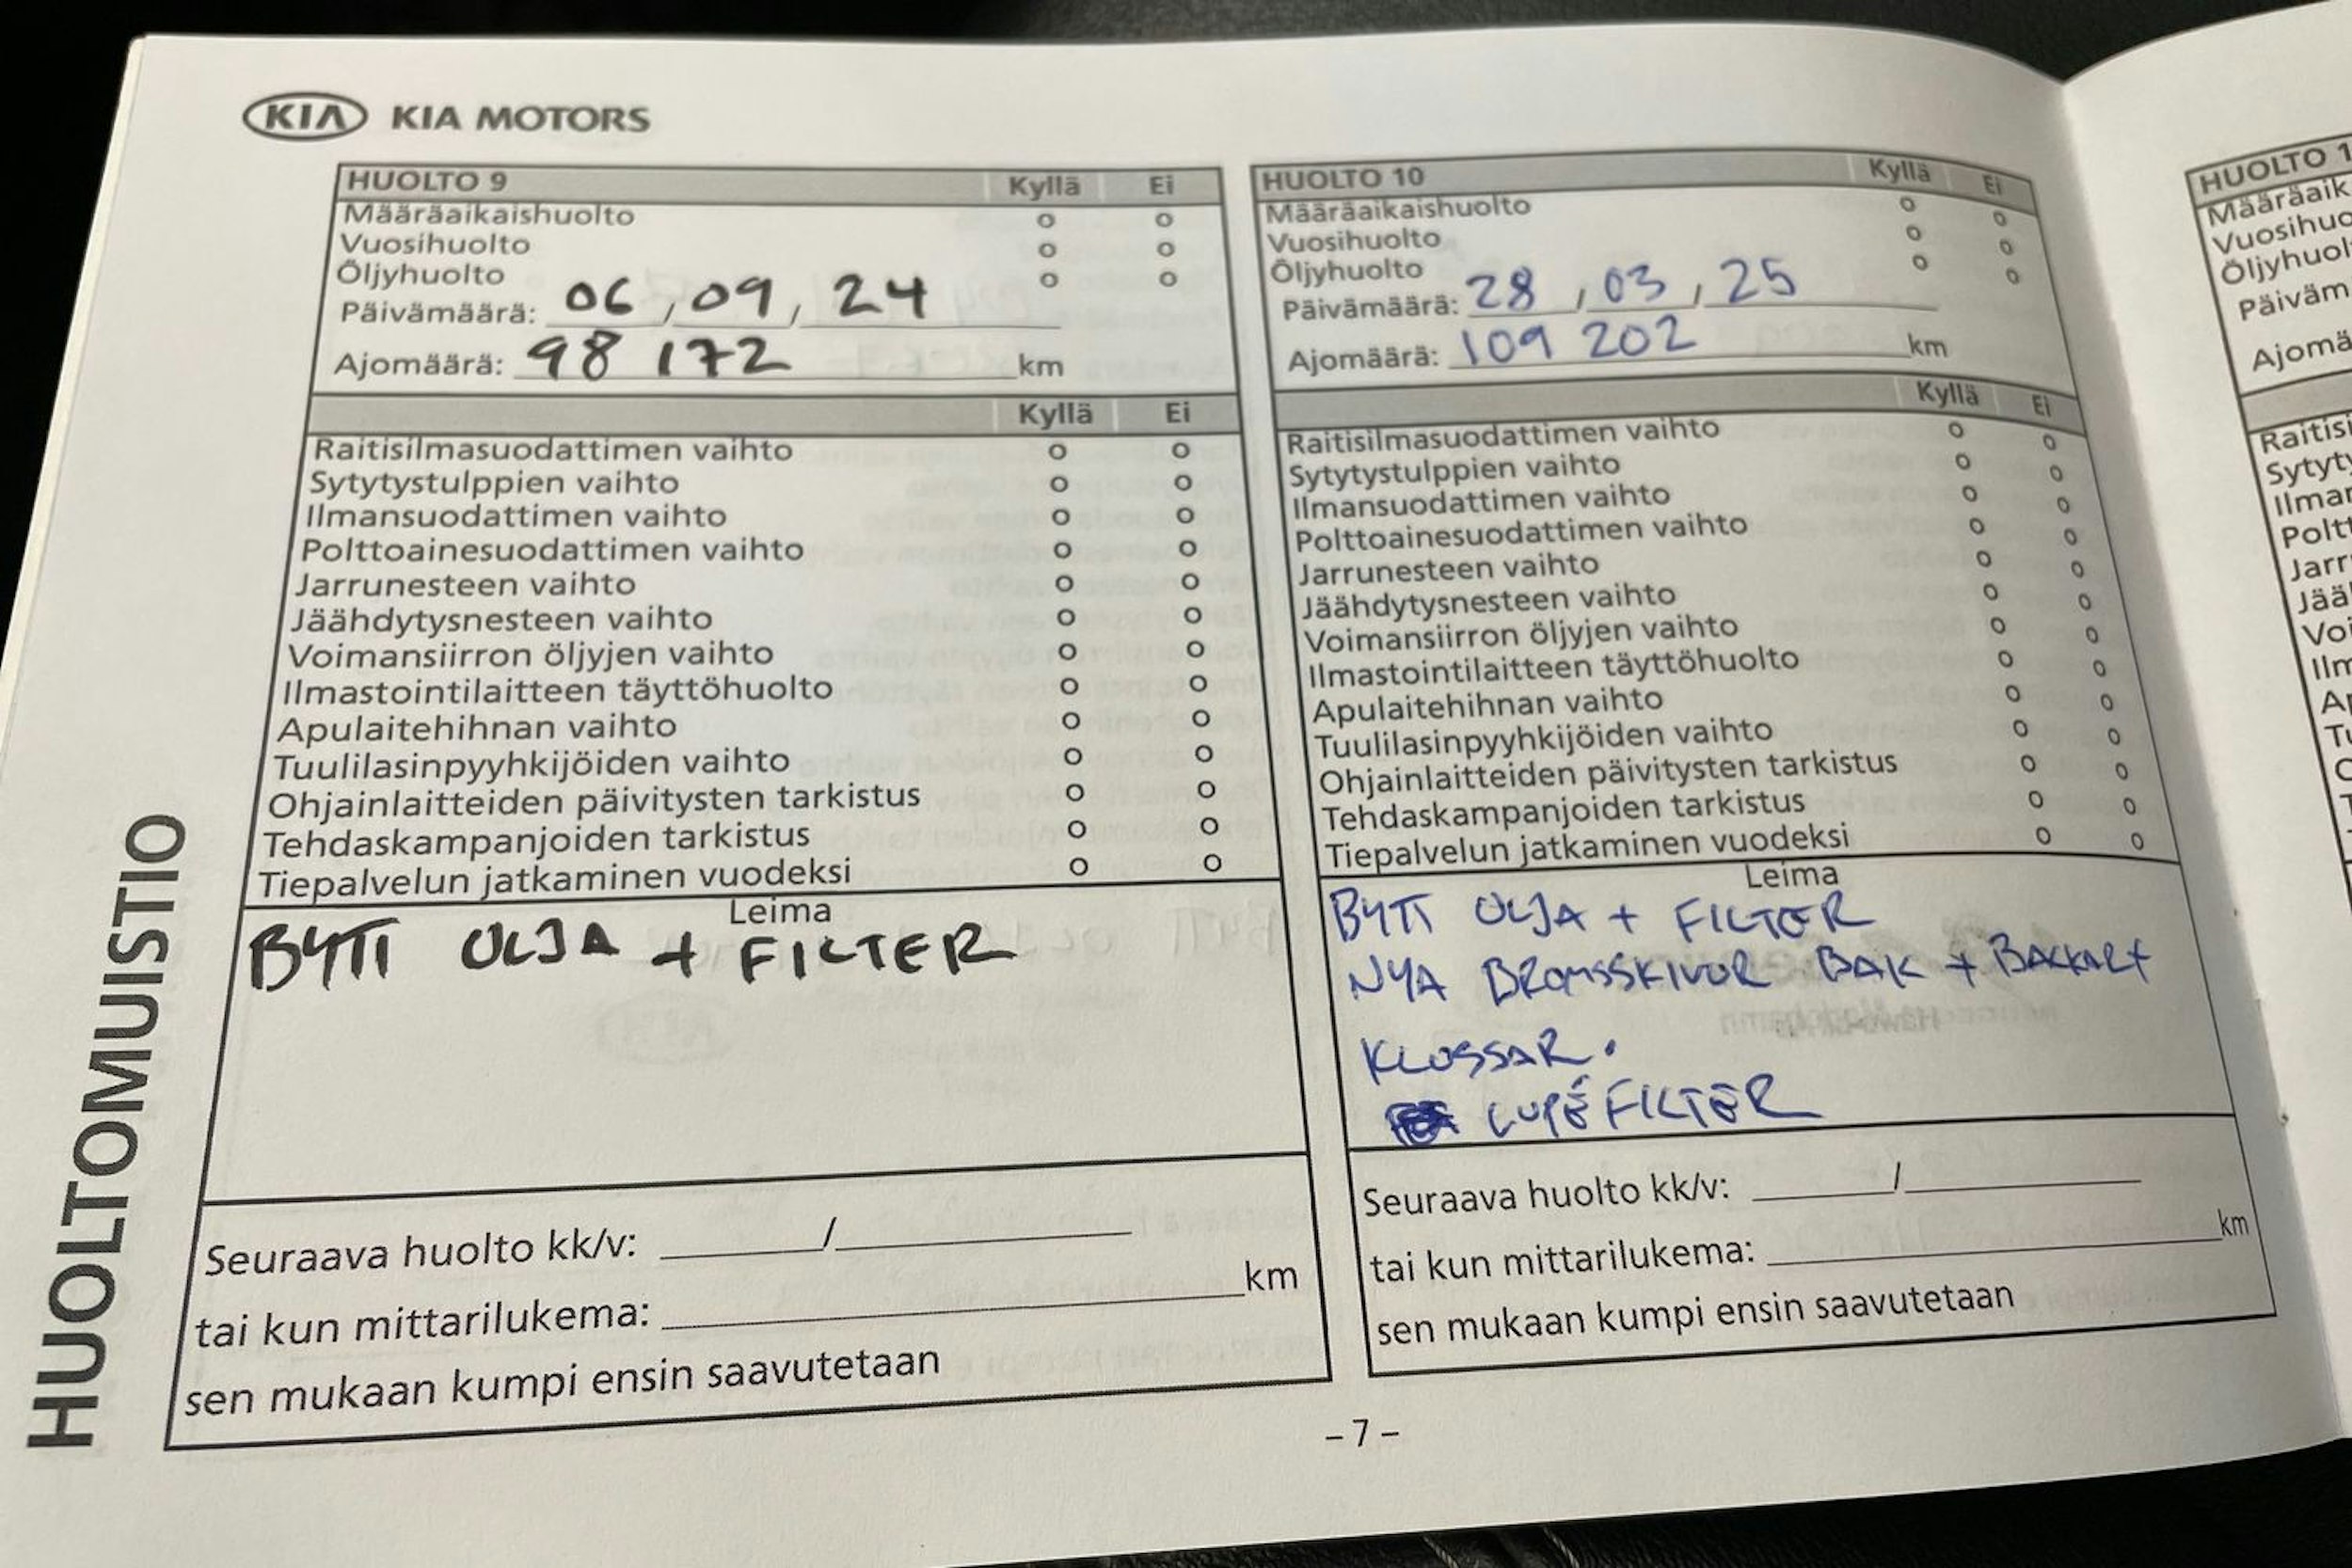 KIA KIA MOTORS
HUOLTOMUISTIO
HUOLTO 9 Kyllä Ei
Määräaikaishuolto o o
Vuosihuolto o o
Öljyhuolto o o
Päivämäärä: 06, 09, 24
Ajomäärä: 98 172 km
Kyllä Ei
Raitisilmasuodattimen vaihto o o
Sytytystulppien vaihto o o
Ilmansuodattimen vaihto o o
Polttoainesuodattimen vaihto o o
Jarrunesteen vaihto o o
Jäähdytysnesteen vaihto o o
Voimansiirron öljyjen vaihto o o
Ilmastointilaitteen täyttöhuolto o o
Apulaitehihnan vaihto o o
Tuulilasinpyyhkijöiden vaihto o o
Ohjainlaitteiden päivitysten tarkistus o o
Tehdaskampanjoiden tarkistus o o
Tiepalvelun jatkaminen vuodeksi o o
Leima
BYTT OLJA + FILTER
Seuraava huolto kk/v: ______/____________
tai kun mittarilukema: ____________________km
sen mukaan kumpi ensin saavutetaan
HUOLTO 10 Kyllä Ei
Määräaikaishuolto o o
Vuosihuolto o o
Öljyhuolto o o
Päivämäärä: 28, 03, 25
Ajomäärä: 109 202 km
Kyllä Ei
Raitisilmasuodattimen vaihto o o
Sytytystulppien vaihto o o
Ilmansuodattimen vaihto o o
Polttoainesuodattimen vaihto o o
Jarrunesteen vaihto o o
Jäähdytysnesteen vaihto o o
Voimansiirron öljyjen vaihto o o
Ilmastointilaitteen täyttöhuolto o o
Apulaitehihnan vaihto o o
Tuulilasinpyyhkijöiden vaihto o o
Ohjainlaitteiden päivitysten tarkistus o o
Tehdaskampanjoiden tarkistus o o
Tiepalvelun jatkaminen vuodeksi o o
Leima
BYTT OLJA + FILTER
NYA BROMSSKIVOR BAK +
KLOSSAR.
CUPÉFILTER
Seuraava huolto kk/v: ______/____________
tai kun mittarilukema: ____________________km
sen mukaan kumpi ensin saavutetaan
- 7 -
HUOLTO 1
Määräaik
Vuosihuo
Öljyhuol
Päiväm
Ajomä
Raitisi
Sytyty
Ilman
Poltt
Jarr
Jääh
Voi
Ilm
Ap
Tu